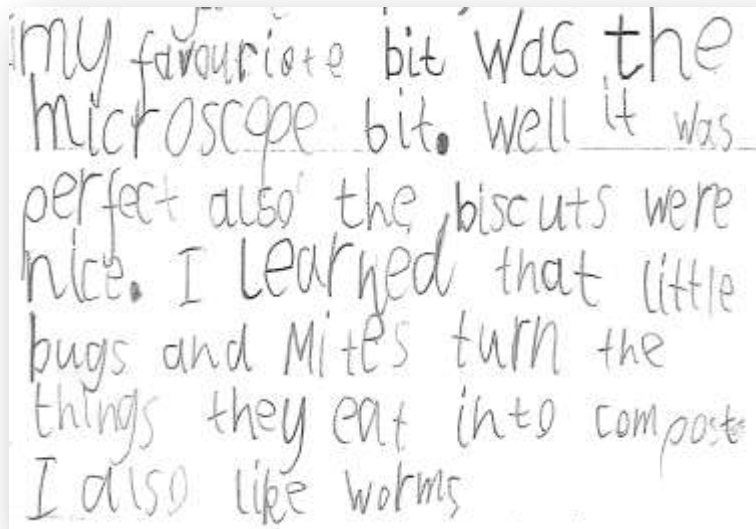 my favouriote bit was the
microscope bit. well it was
perfect also the biscuts were
nice. I Learned that little
bugs and Mites turn the
things they eat into compost
I also like worms